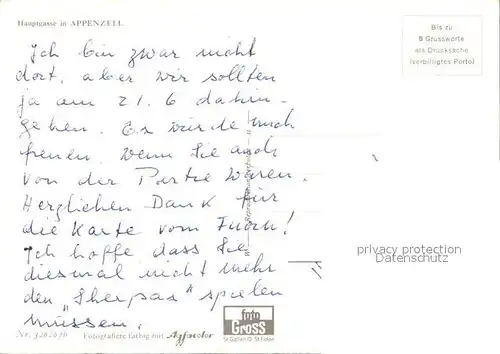 Hauptgasse in APPENZELL
Bis zu
5 Grussworte
als Drucksache
(verbilligtes Porto)
Ich bin zwar nicht
dort, aber wir sollten
ja am 21. 6 dahin-
gehen. Es würde mich
freuen, wenn Sie auch
von der Partie wären.
Herzlichen Dank für
die Karte vom
Ich hoffe, dass Sie
diesmal nicht mehr
den "Sherpas" spielen
müssen.
privacy protection
Datenschutz
foto
Gross
St. Gallen St. Fiden
Fotografiert farbig mit Agfacolor